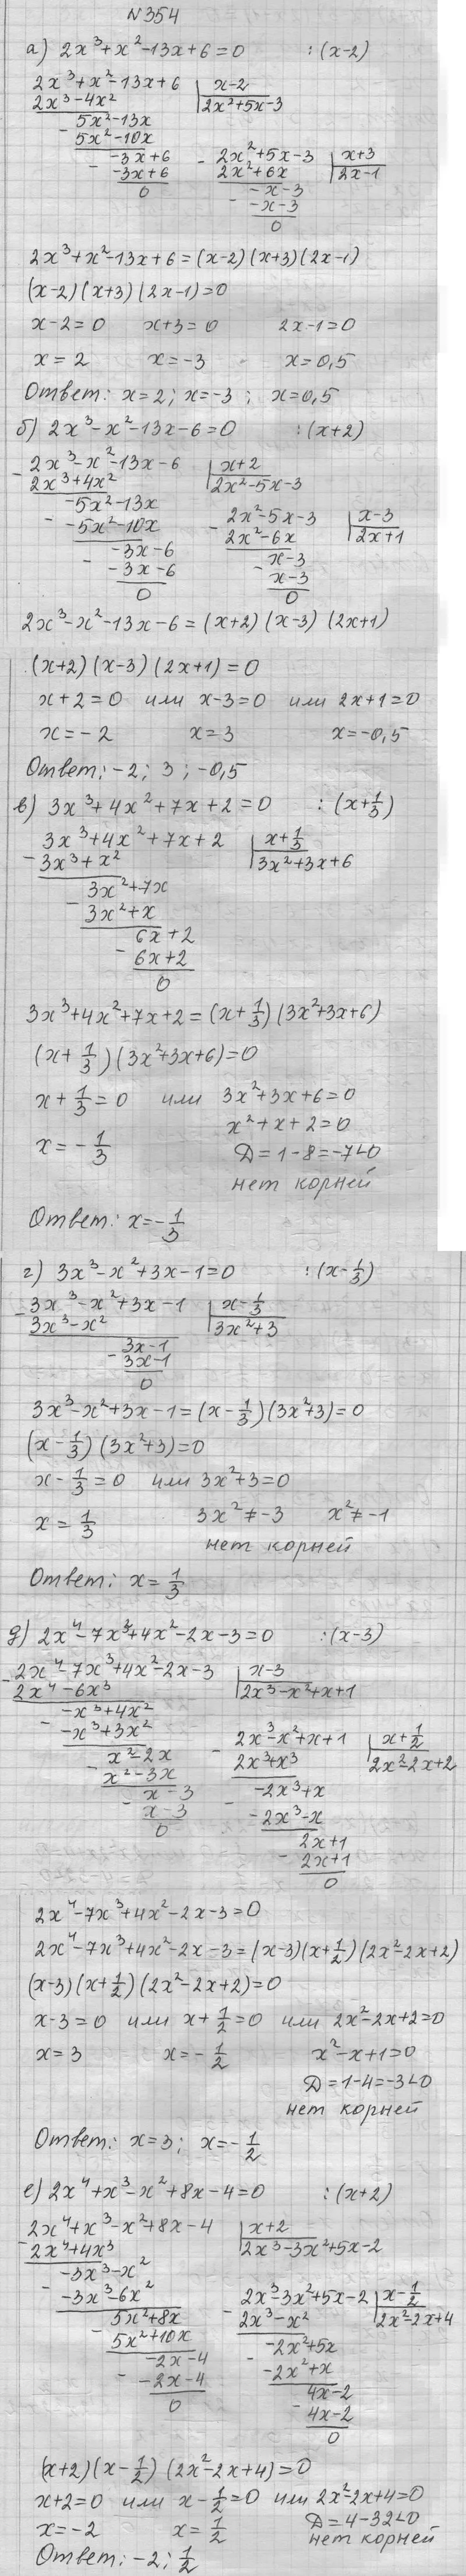 №354
а) 2x³+x²-13x+6=0 :(x-2)
2x³+x²-13x+6 x-2
2x³-4x² 2x²+5x-3
5x²-13x
- 5x²-10x
-3x+6 - 2x²+5x-3 x+3
- -3x+6 2x²+6x 2x-1
0 -x-3
- -x-3
0
2x³+x²-13x+6=(x-2)(x+3)(2x-1)
(x-2)(x+3)(2x-1)=0
x-2=0 x+3=0 2x-1=0
x=2 x=-3 x=0,5
Ответ: x=2; x=-3; x=0,5
б) 2x³-x²-13x-6=0 :(x+2)
- 2x³-x²-13x-6 x+2
2x³+4x² 2x²-5x-3
-5x²-13x
- -5x²-10x - 2x²-5x-3 x-3
-3x-6 2x²-6x 2x+1
- -3x-6 x-3
0 - x-3
0
2x³-x²-13x-6=(x+2)(x-3)(2x+1)
(x+2)(x-3)(2x+1)=0
x+2=0 или x-3=0 или 2x+1=0
x=-2 x=3 x=-0,5
Ответ: -2; 3; -0,5
в) 3x³+4x²+7x+2=0 :(x+1/3)
3x³+4x²+7x+2 x+1/3
- 3x³+x² 3x²+3x+6
3x²+7x
- 3x²+x
6x+2
- 6x+2
0
3x³+4x²+7x+2=(x+1/3)(3x²+3x+6)
(x+1/3)(3x²+3x+6)=0
x+1/3=0 или 3x²+3x+6=0
x=-1/3 x²+x+2=0
Д=1-8=-7<0
нет корней
Ответ: x=-1/3
г) 3x³-x²+3x-1=0 :(x-1/3)
- 3x³-x²+3x-1 x-1/3
3x³-x² 3x²+3
3x-1
- 3x-1
0
3x³-x²+3x-1=(x-1/3)(3x²+3)=0
(x-1/3)(3x²+3)=0
x-1/3=0 или 3x²+3=0
x=1/3 3x²≠-3 x²≠-1
нет корней
Ответ: x=1/3
д) 2x⁴-7x³+4x²-2x-3=0 :(x-3)
- 2x⁴-7x³+4x²-2x-3 x-3
2x⁴-6x³ 2x³-x²+x+1
-x³+4x²
- -x³+3x² - 2x³-x²+x+1 x+1/2
x²-2x 2x³+x³ 2x²-2x+2
- x²-3x -2x³+x
x-3 - -2x³-x
- x-3 2x+1
0 - 2x+1
0
2x⁴-7x³+4x²-2x-3=0
2x⁴-7x³+4x²-2x-3=(x-3)(x+1/2)(2x²-2x+2)
(x-3)(x+1/2)(2x²-2x+2)=0
x-3=0 или x+1/2=0 или 2x²-2x+2=0
x=3 x=-1/2 x²-x+1=0
Д=1-4=-3<0
нет корней
Ответ: x=3; x=-1/2
е) 2x⁴+x³-x²+8x-4=0 :(x+2)
2x⁴+x³-x²+8x-4 x+2
- 2x⁴+4x³ 2x³-3x²+5x-2
-3x³-x²
- -3x³-6x² 2x³-3x²+5x-2 x-1/2
5x²+8x - 2x³-x² 2x²-2x+4
- 5x²+10x -2x²+5x
-2x-4 - -2x²+x
- -2x-4 4x-2
0 - 4x-2
0
(x+2)(x-1/2)(2x²-2x+4)=0
x+2=0 или x-1/2=0 или 2x²-2x+4=0
x=-2 x=1/2 Д=4-32<0
нет корней
Ответ: -2; 1/2